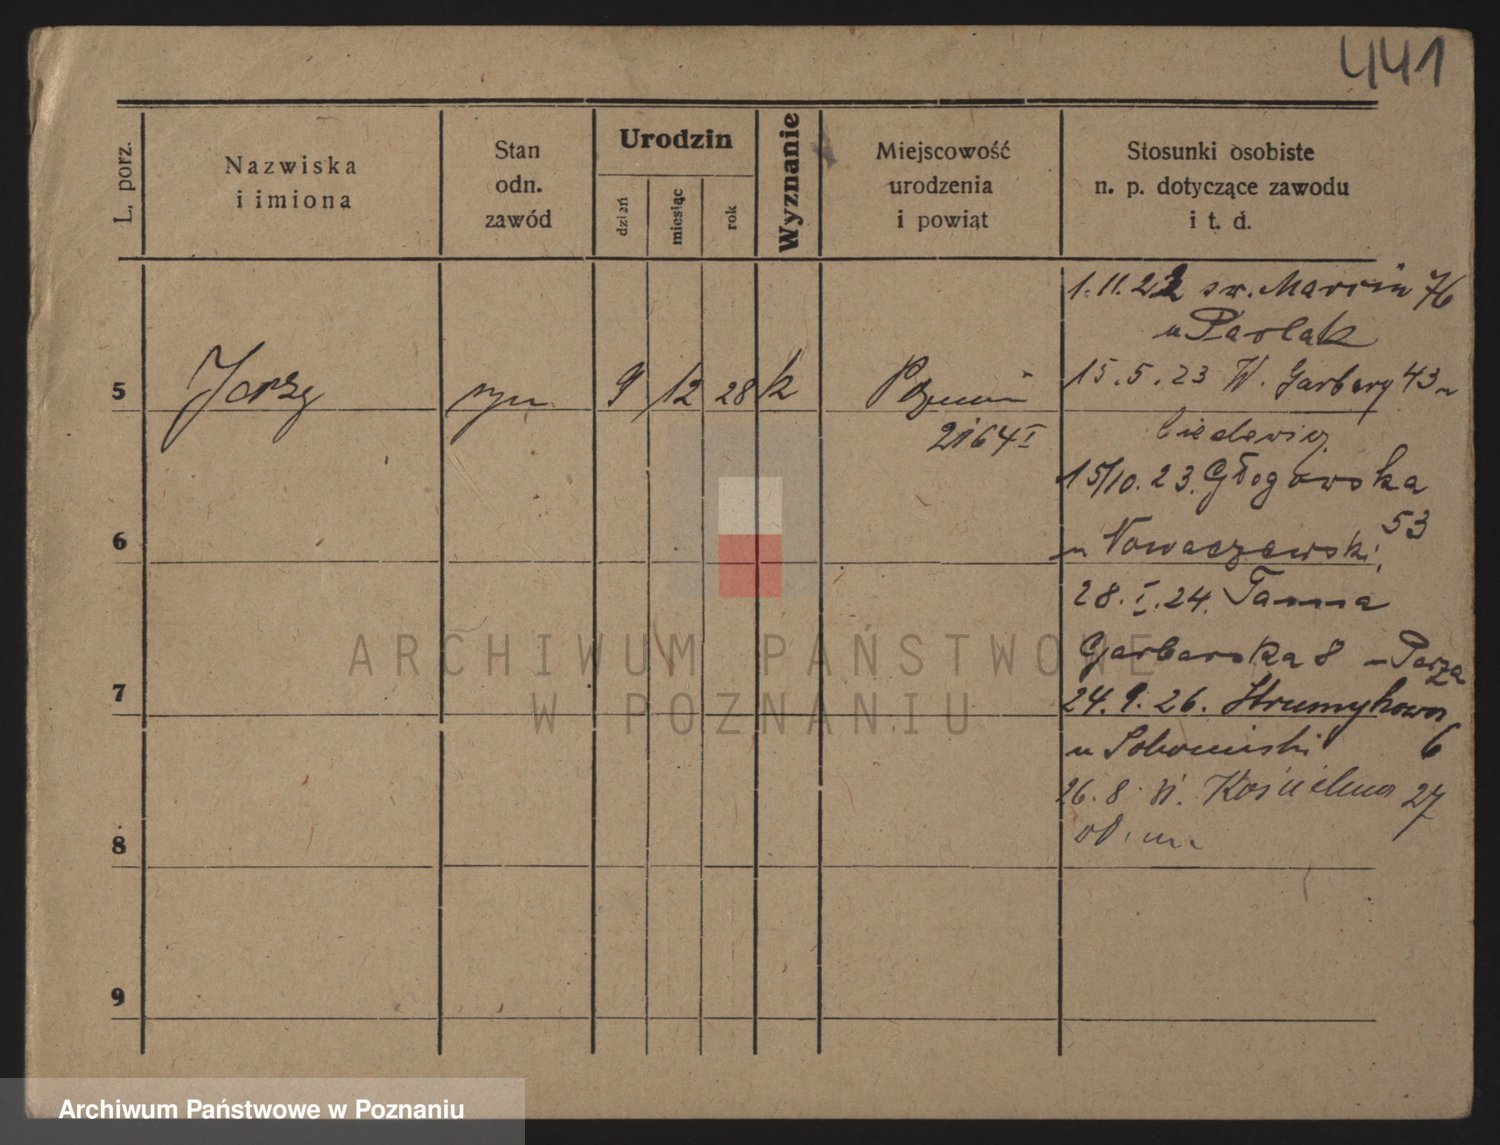 441
L. porz.
Nazwiska
i imiona
Stan
odn.
zawód
Urodzin
dzień
miesiąc
rok
Wyznanie
Miejscowość
urodzenia
i powiat
Stosunki osobiste
n. p. dotyczące zawodu
i t. d.
1.11.22 św. Marcin 76
u Pawlak
5 Jerzy syn 9 12 28 k Poznań
2164 I
15.5.23 W. Garbary 43 u
15/10.23. Głogowska
53
u Nowaczewski,
28.I.24. Tamma
Garbarska 8 u
24.9.26. Strumykowa
6
u
26.8 Kościelna 27
6
7
8
9
ARCHIWUM PAŃSTWOWE
W POZNANIU
Archiwum Państwowe w Poznaniu